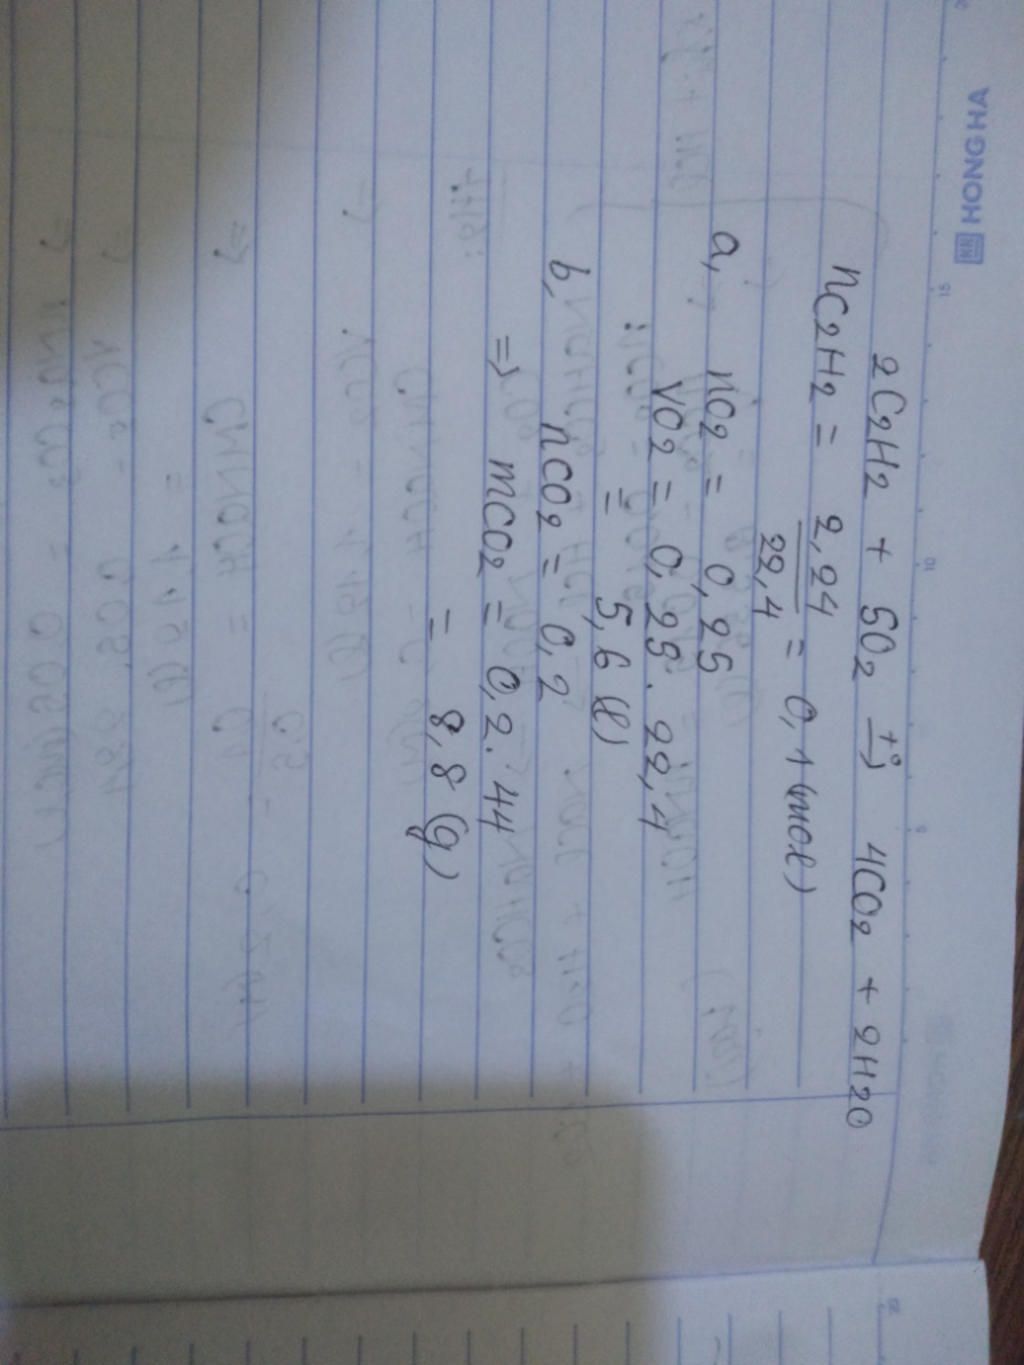 HONG HA
2C2H2 + 5O2 t°→ 4CO2 + 2H2O
nC2H2 = 2,24/22,4 = 0,1 (mol)
a, nO2 = 0,25
VO2 = 0,25 . 22,4
= 5,6 (l)
b, nCO2 = 0,2
=> mCO2 = 0,2 . 44
= 8,8 (g)